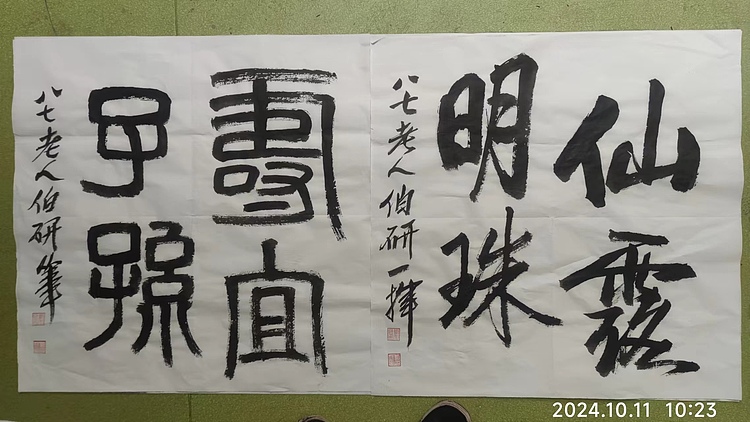 仙露
明珠
八七老人伯研一揮
壽宜
子孫
八七老人伯研筆
2024.10.11 10:23